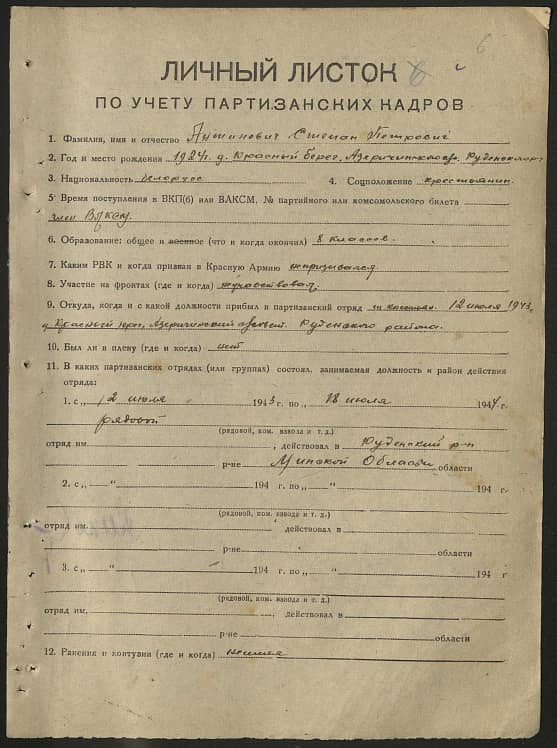 6
ЛИЧНЫЙ ЛИСТОК
ПО УЧЕТУ ПАРТИЗАНСКИХ КАДРОВ
1. Фамилия, имя и отчество Степан Петрович
2. Год и место рождения 1924г. д. Красный берег,
3. Национальность белорус 4. Соцположение крестьянин.
5. Время поступления в ВКП(б) или ВЛКСМ, № партийного или комсомольского билета
член ВЛКСМ
6. Образование: общее и военное (что и когда окончил) 8 классов.
7. Каким РВК и когда призван в Красную Армию не призывался
8. Участие на фронтах (где и когда)
9. Откуда, когда и с какой должности прибыл в партизанский отряд 12 июля 1943
Руденского района.
10. Был ли в плену (где и когда) нет
11. В каких партизанских отрядах (или группах) состоял, занимаемая должность и район действия
отряда:
1. с „ 12 июля 1943 г. по „ 18 июля 1944 г.
рядовой
(рядовой, ком. взвода и т. д.)
отряд им. , действовал в Руденский р-н
р-не Минской Области области
2. с „ “ 194 г. по „ “ 194 г.
(рядовой, ком. взвода и т. д.)
отряд им. действовал в
р-не области
3. с „ “ 194 г. по „ “ 194 г
(рядовой, ком. взвода и т. д.)
отряд им. , действовал в
р-не области
12. Ранения и контузии (где и когда)